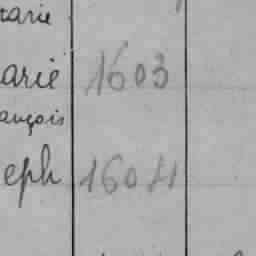 arie
arie 1603
ançois
eph 1604